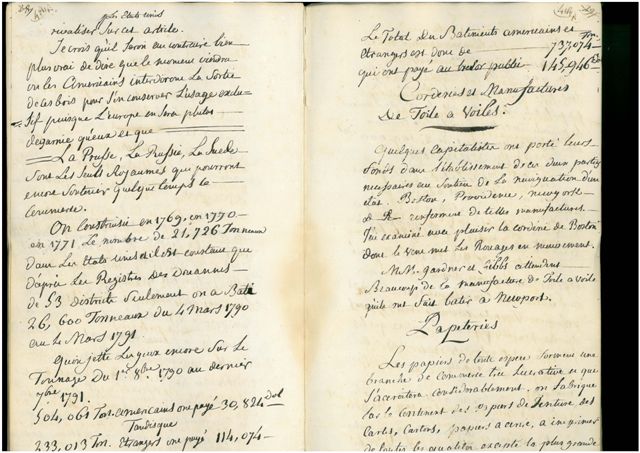 par les Etats unis
rivaliser sur cet article.
Je crois qu'il seroit au contraire bien
plus vrai de dire que le moment viendra
ou les Américains interdirons la sortie
de ces bois pour s'en conserver l'usage exclu-
sif puisque l'Europe en sera plutot
degarnie qu'eux et que
La Prusse, La Russie, La Suede
sont les seuls Royaumes qui pourront
encore soutenir quelque temps le
commerce.
On Construisit en 1769, en 1770
en 1771 Le nombre de 21,726 Tonneaux
dans les Etats unis et il est constant que
d'après Les Registres des Douannes
de 53 districts seulement on a Bati
26,600 Tonneaux du 4 Mars 1790
au 4 Mars 1791
Qu'on jette Les yeux encore sur Le
Tonnage Du 1er 8bre 1790 au dernier
7bre 1791.
504,061 Ton. americains ont payé 30,824 Dol
Tandisque
233,013 Ton. Etrangers ont payé 114,074
Le Total Du Batiments americains et
Etrangers est donc de 737,074 Ton.
qui ont payé au tresor public 145,946
Corderies et Manufactures
De Toile a Voiles.
Quelques Capitalistes ont porté leurs
fonds dans l'établissement de ces deux parties
necessaires au soutien de la navigation d'un
état. Boston, Providence, newyork
et & renferment de telles manufactures.
J'ai examiné avec plaisir la corderie de Boston
dont le vent met les Rouages en mouvement.
M.M. gardner et gibbs attendent
Beaucoup de la manufacture de Toile a voile
qu'ils ont fait batir a Newport.
Papeteries
Les papiers de toute espece forment une
branche de commerce tres lucrative et qui
s'accroitra considerablement. on fabrique
sur le Continent des papiers de Tenture des
Cartes, Cartons, papiers a ecrire, a imprimer
de toutes les qualités excepté la plus grande